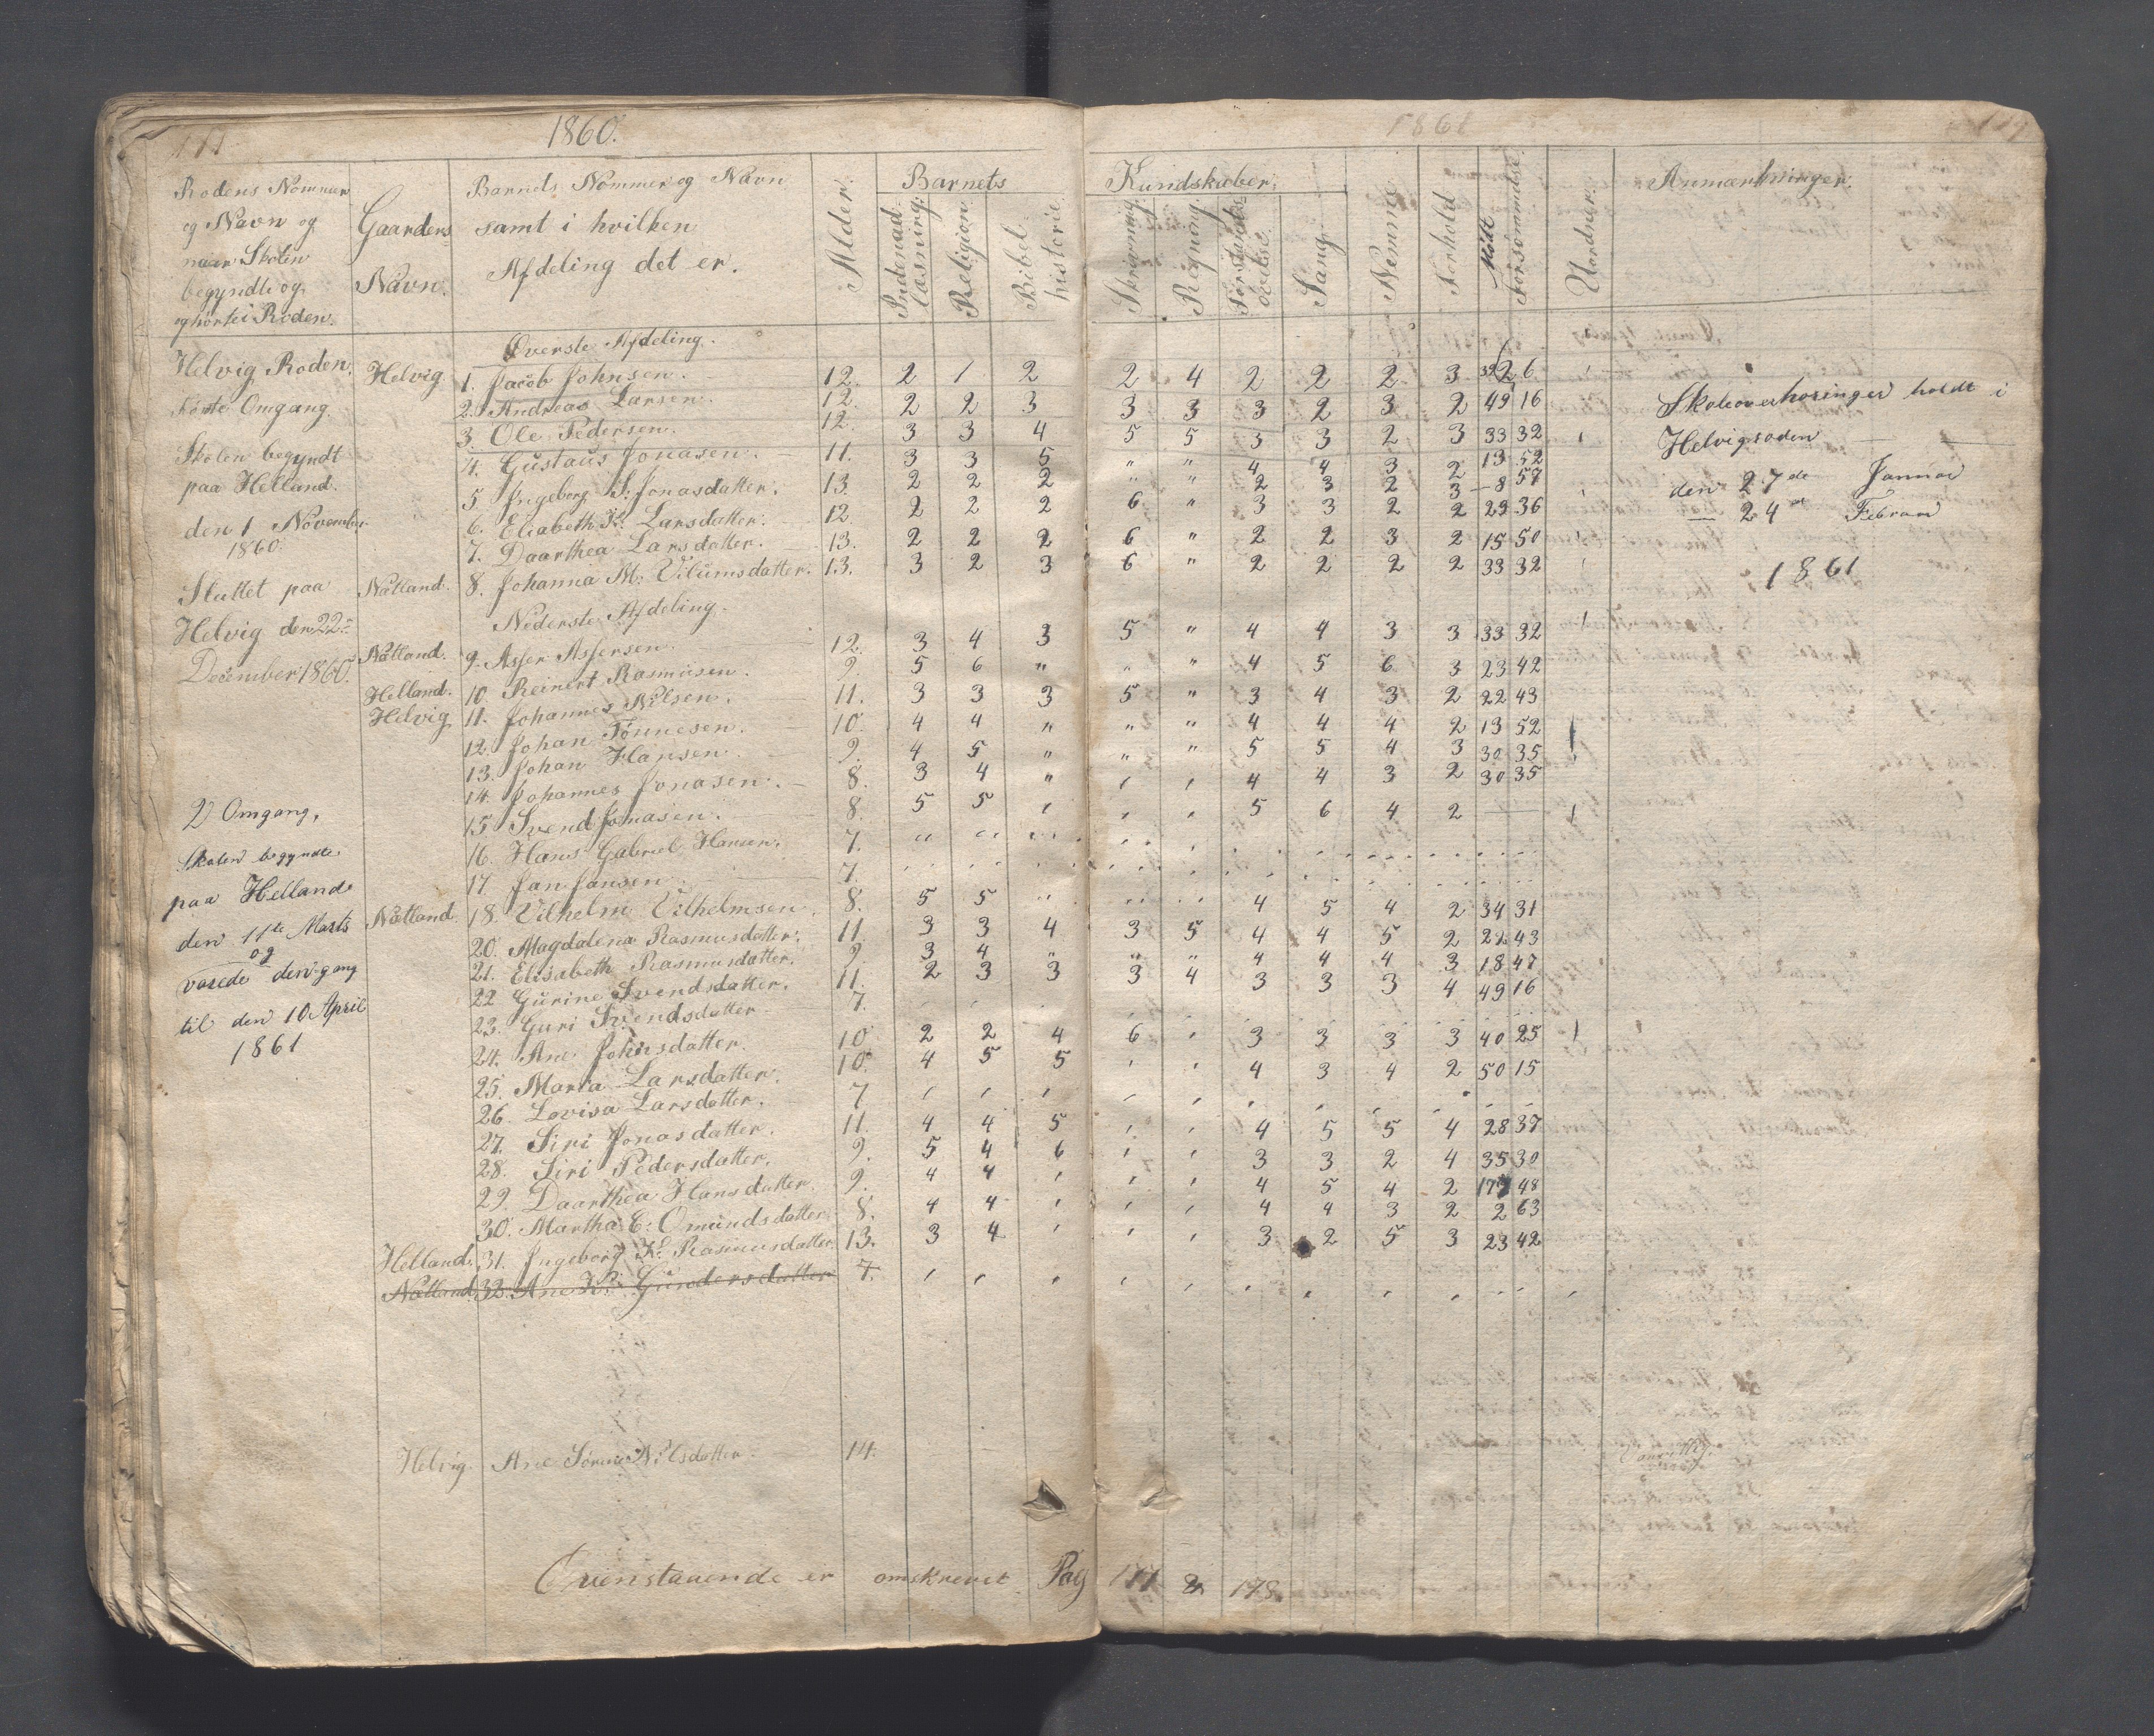 1860.
1861
Rodens Nommer
og Navn og
naar Skolen
begyndte og
ophörte i Roden.
Gaardens
Navn.
Barnets Nommer og Navn
samt i hvilken
Afdeling det er.
Alder.
Barnets
Kundskaber.
Indenad-
læsning.
Religion
Bibel-
historie.
Skrivning.
Regning.
Forstands-
övelse.
Sang.
Nemme
Forhold
Mödt
Forsömmelse.
Uordner.
Anmærkninger.
Överste Afdeling.
Helvig Roden.
Förste Omgang.
Skolen begyndt
paa Helland.
den 1 November
1860.
Sluttet paa
Helvig den 22
December 1860.
2) Omgang,
Skolen begyndte
paa Helland
den 11te Marts
og
varede den gang
til den 10 April
1861
Helvig 1. Jacob Johnsen. 12. 2 1 2 2 4 2 2 2 3 39 26
2. Andreas Larsen. 12. 2 2 3 3 3 3 2 3 2 49 16
3. Ole Pedersen. 12. 3 3 4 5 5 3 3 2 3 33 32
4. Gustaus Jonasen. 11. 3 3 5 " " 4 4 3 2 13 52
5 Ingeborg S: Jonasdatter. 13. 2 2 2 " " 2 3 2 3 8 57
6. Eliabeth K: Larsdatter. 12. 2 2 2 6 " 3 3 2 2 29 36
7. Daarthea Larsdatter. 13. 2 2 2 6 " 2 2 3 2 15 50
Nätland. 8. Johanna M: Vilumsdatter. 13. 3 2 3 6 " 2 2 2 2 33 32
Nederste Afdeling.
Nätland. 9. Asser Assersen 12. 3 4 3 5 " 4 4 3 3 33 32
Helland. 10. Reinert Rasmusen. 9. 5 6 " " " 4 5 6 3 23 42
Helvig 11. Johannes Nilsen. 11. 3 3 3 5 " 3 4 3 2 22 43
12. Johan Tönnesen. 10. 4 4 " " " 4 4 4 2 13 52
13. Johan Hansen 9. 4 5 " " " 5 5 4 3 30 35
14. Johannes Jonasen. 8. 3 4 " 4 4 3 2 30 35
15 Svend Jonasen. 8. 5 5 5 6 4 2
16. Hans Gabriel Hansen. 7.
17. Jan Jansen 7.
Nætland. 18. Vilhelm Vilhelmsen 8. 5 5 4 5 4 2 34 31
20. Magdalena Rasmusdatter. 11 3 3 4 3 5 4 4 5 2 22 43
21. Elisabeth Rasmusdatter. 9. 3 4 " " " 4 4 4 3 18 47
22 Gurine Svendsdatter. 11. 2 3 3 3 4 3 3 3 4 49 16
23. Guri Svendsdatter 7.
24. Ane Johnsdatter. 10 2 2 4 6 3 3 3 3 40 25
25. Maria Larsdatter. 10. 4 5 5 4 3 4 2 50 15
26. Lovisa Larsdatter. 7
27. Siri Jonasdatter. 11. 4 4 5 4 5 5 4 28 37
28. Siri Pedersdatter. 9. 5 4 6 3 3 2 4 35 30
29. Daarthea Hansdatter. 9. 4 4 4 5 4 2 17 48
30. Martha E: Omundsdatter 8. 4 4 4 4 3 2 2 63
Helland. 31. Ingeborg K. Rasmusdatter 13. 3 4 3 2 5 3 23 42
Nætland. 32. Ane K: Gundersdatter 7.
Skoleoverhöringer holdt i
Helvigroden
den 27de Januar
24de Februar
1861
Helvig. Ane Sörine Nilsdatter. 14.
Ovenstaaende er omskrevet Pag 177 & 178